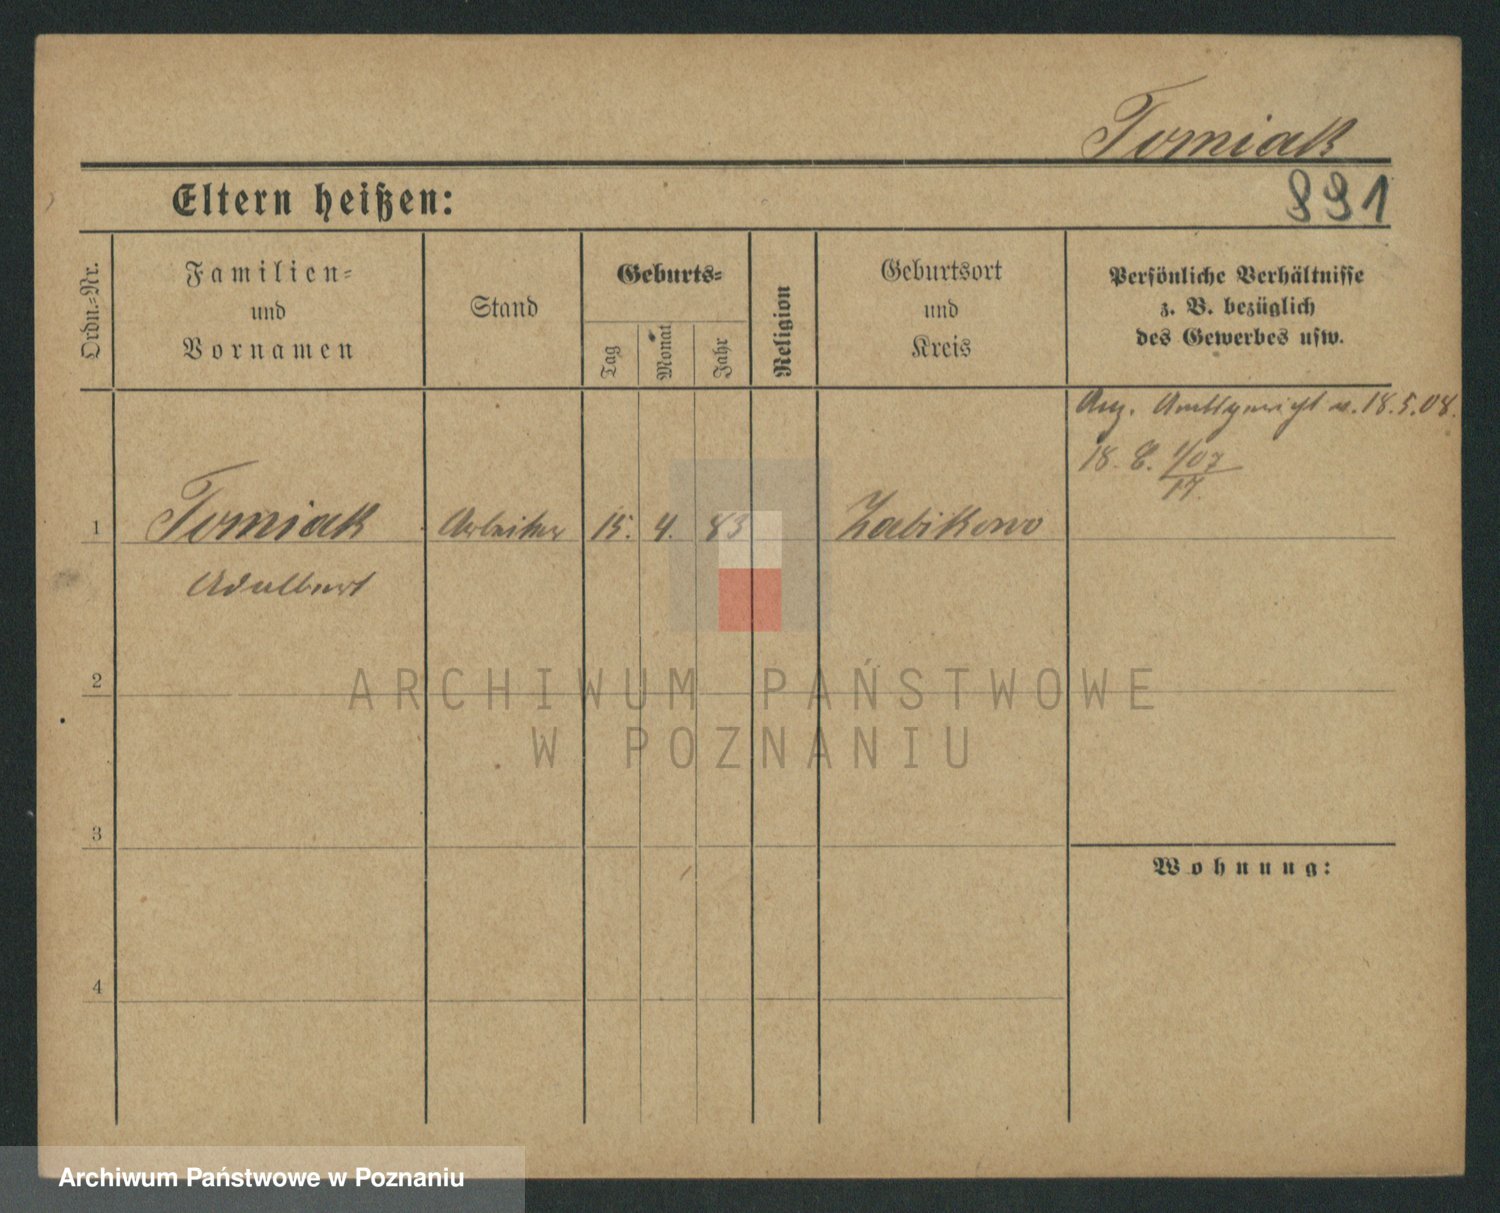 Tomiak
891
Eltern heißen:
Ordn.-Nr.
Familien-
und
Vornamen
Stand
Geburts-
Tag
Monat
Jahr
Religion
Geburtsort
und
Kreis
Persönliche Verhältnisse
z. B. bezüglich
des Gewerbes usw.
Anz. Amtsgericht v. 18.5.08.
18. C. 1/07
17.
1
Tomiak
Arbeiter
15.
4.
83
Zabikowo
Adalbert
2
ARCHIWUM PAŃSTWOWE
W POZNANIU
3
Wohnung:
4
Archiwum Państwowe w Poznaniu